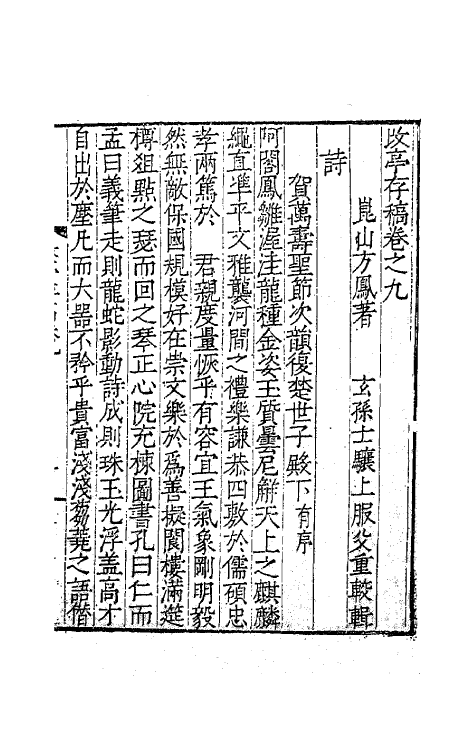 改亭存稿卷之九
崑山方鳳著　玄孫士驤上服父重較輯
詩
賀萬壽聖節次韻復楚世子殿下有序
阿閣鳳雛渥洼龍種金姿玉質曇尼觧天上之麒麟
繩直準平文雅襲河間之禮樂謙恭四敷於儒碩忠
孝兩篤於　君親度量恢乎有容宜王氣象剛明毅
然無敵保國規模好在崇文樂於爲善擬閣樓滿筵
樽俎點之瑟而回之琴正心院充棟圖書孔曰仁而
孟曰義筆走則龍蛇影動詩成則珠玉光浮盖高才
自出於塵凡而大噐不矜乎貴富淺淺芻蕘之語僭